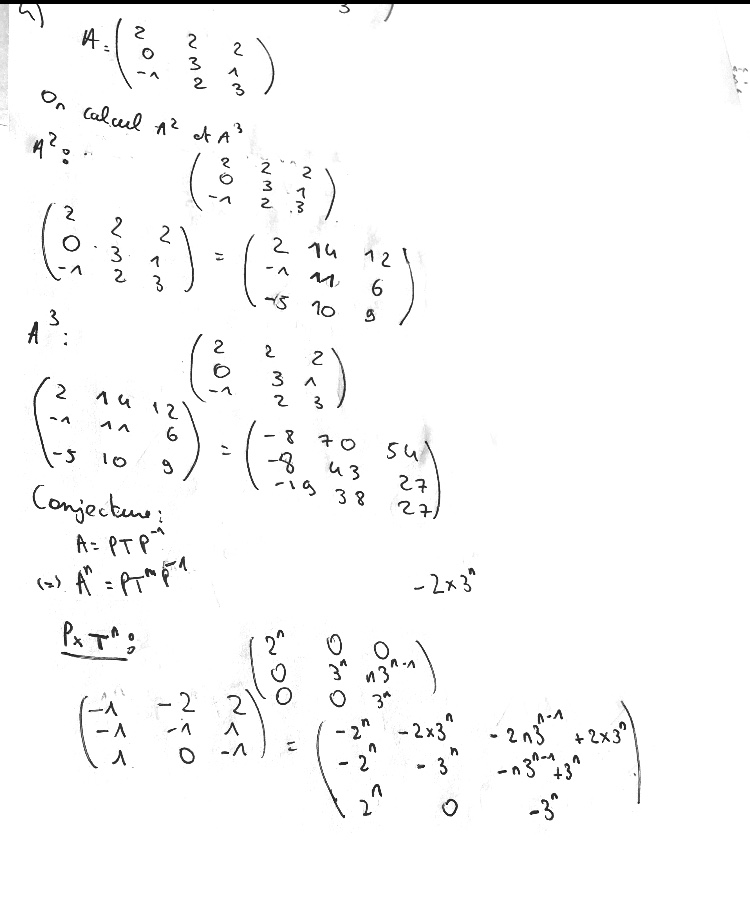 4)
3 )
A = ( 2 2 2
0 3 1
-1 2 3 )
On calcul A² et A³
A² :
( 2 2 2
0 3 1
-1 2 3 )
( 2 2 2
0 3 1
-1 2 3 ) = ( 2 14 12
-1 11 6
-5 10 9 )
A³ :
( 2 2 2
0 3 1
-1 2 3 )
( 2 14 12
-1 11 6
-5 10 9 ) = ( -8 70 54
-8 43 27
-19 38 27 )
Conjecture :
A = PTP⁻¹
(=) Aⁿ = PTⁿP⁻¹
-2×3ⁿ
P× Tⁿ :
( 2ⁿ 0 0
0 3ⁿ n3ⁿ⁻¹
0 0 3ⁿ )
( -1 -2 2
-1 -1 1
1 0 -1 ) = ( -2ⁿ -2×3ⁿ -2n3ⁿ⁻¹ +2×3ⁿ
-2ⁿ -3ⁿ -n3ⁿ⁻¹+3ⁿ
2ⁿ 0 -3ⁿ )